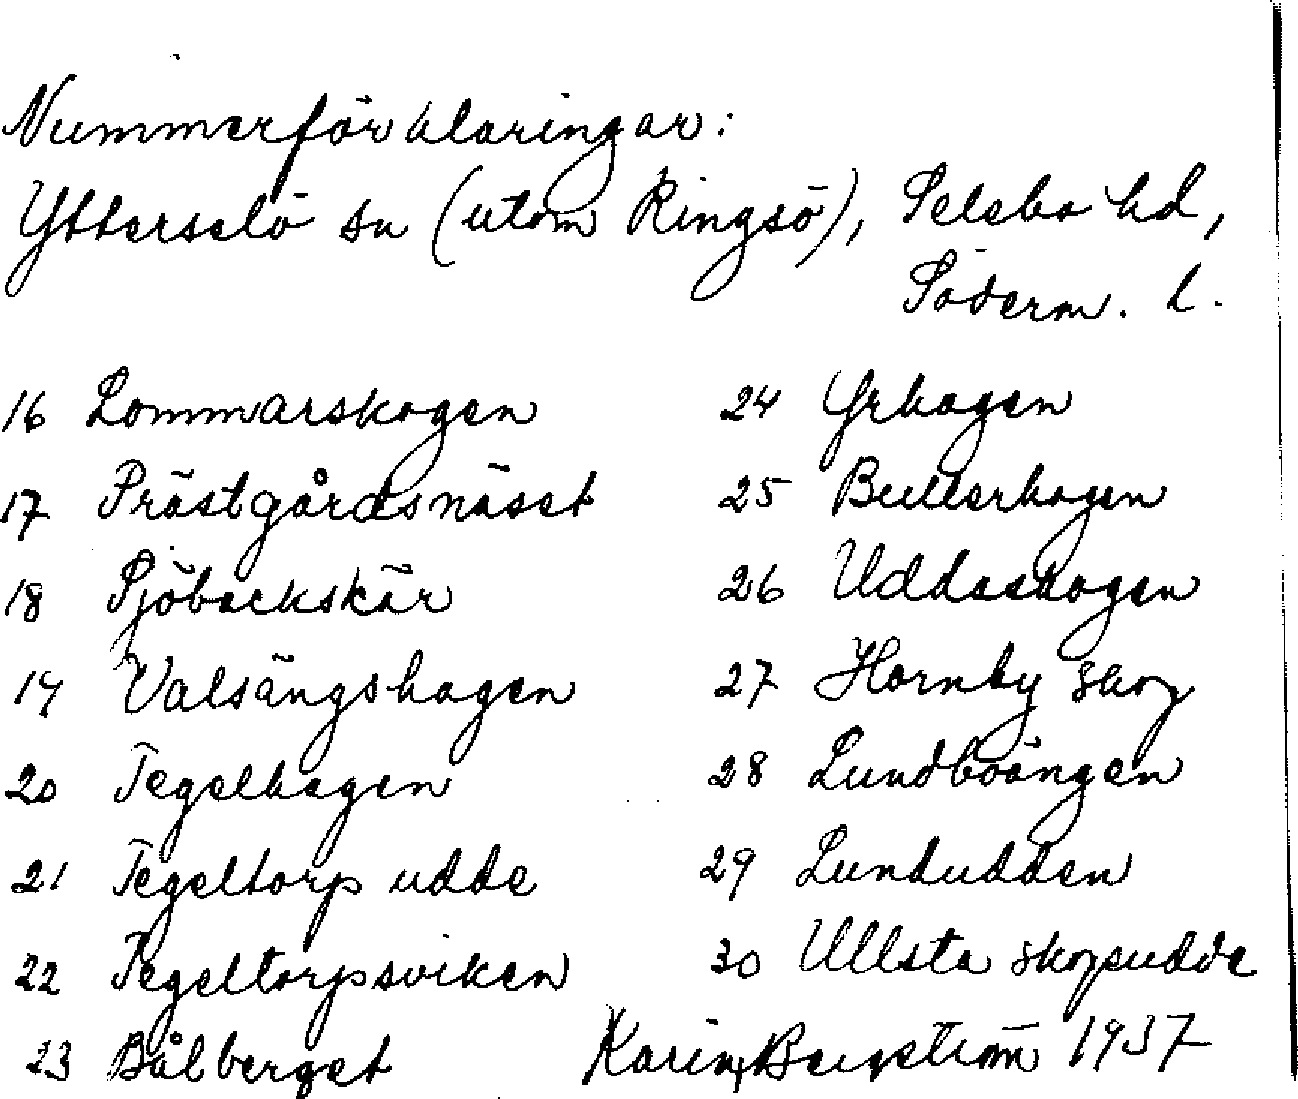 Nummerförklaringar:
Ytterselö sn (utom Ringsö), Selebo hd,
Söderm. l.
16 Lommarskogen
17 Prästgårdsnäset
18 Sjöbackskär
19 Valsängshagen
20 Tegelhagen
21 Tegeltorp udde
22 Tegeltorpsviken
23 Bålberget
24 Yrhagen
25 Bullerhagen
26 Uddaskogen
27 Hornby skog
28 Lundboängen
29 Lundudden
30 Ullsta skogsudde
Karin Bergström 1937